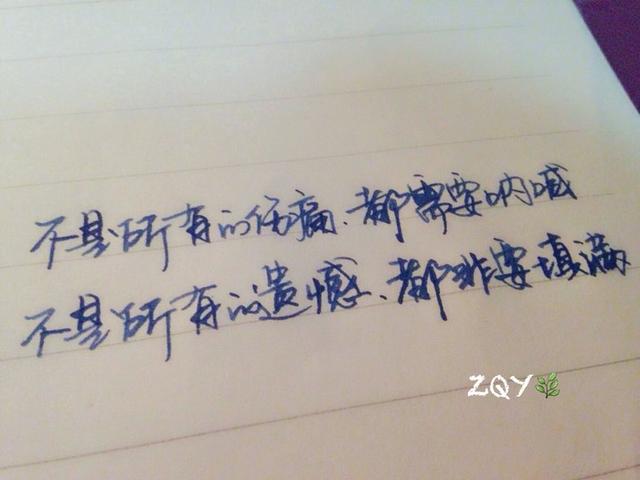 不是所有的伤痛、都需要呐喊
不是所有的遗憾、都非要填满
ZQY